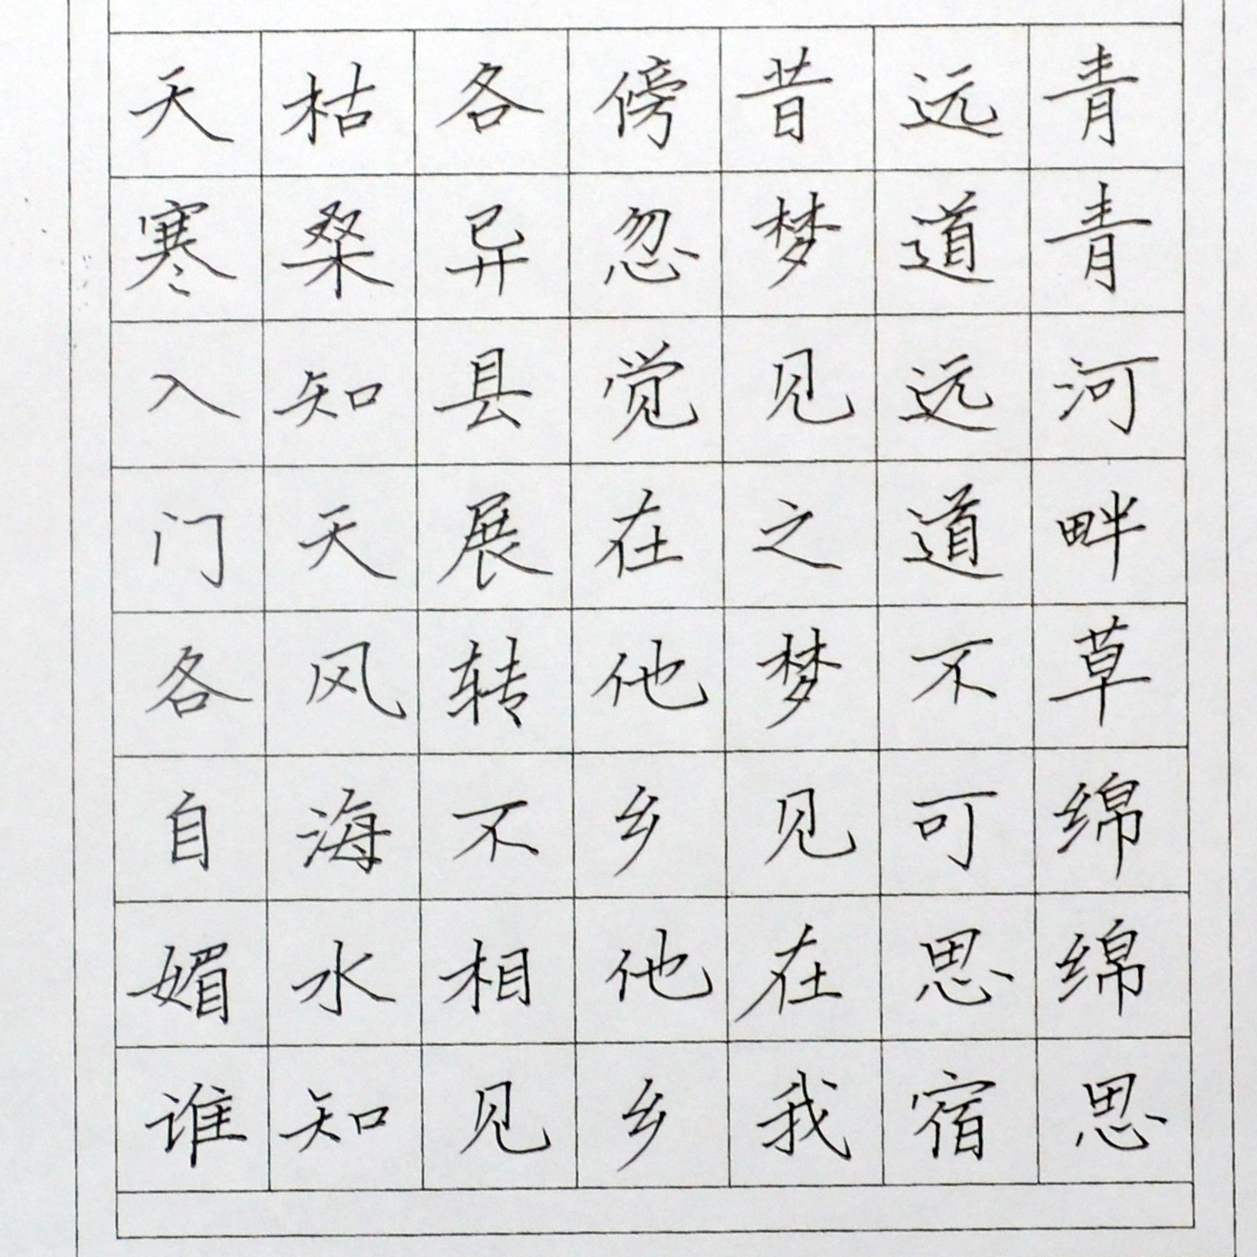 青青河畔草绵绵思
远道远道不可思宿
昔梦见之梦见在我
傍忽觉在他乡他乡
各异县展转不相见
枯桑知天风海水知
天寒入门各自媚谁